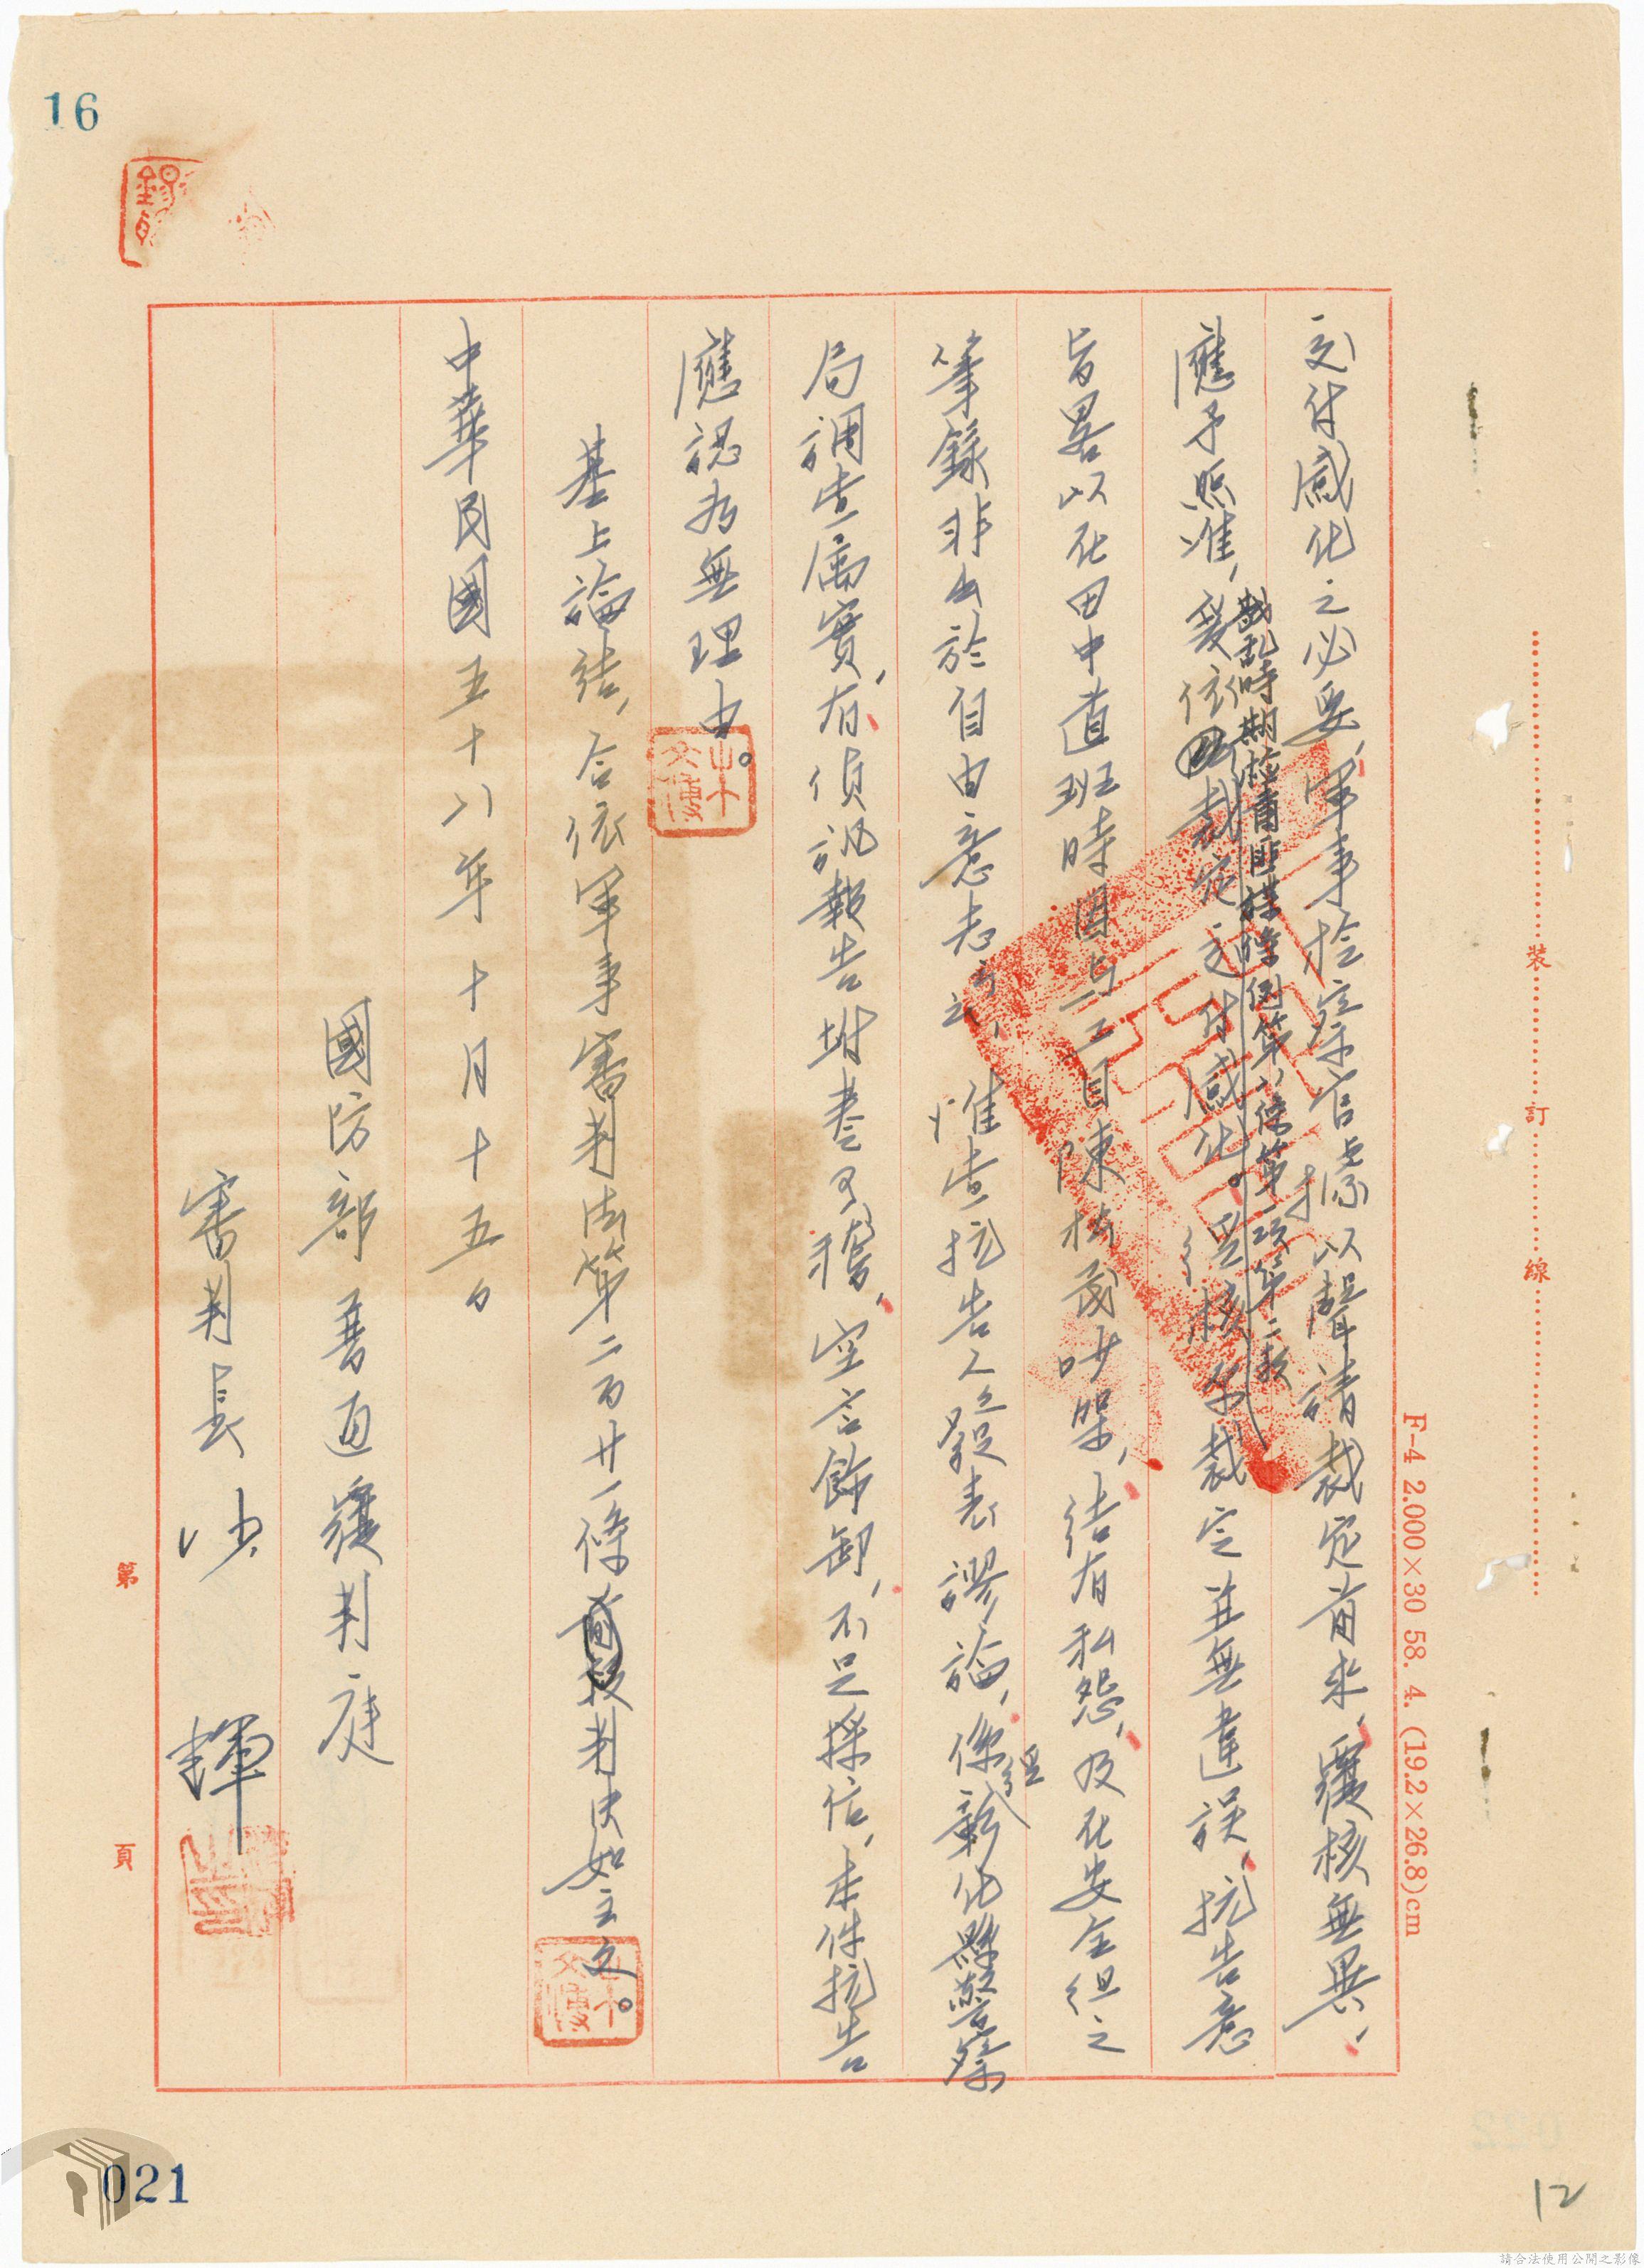 交付感化之必要，軍事檢察官據以聲請裁定前來，覆核無異，
應予照准，爰依戡亂時期檢肅匪諜條例第八條第一項第二款裁定交付感化。經核原裁定並無違誤，抗告意
旨畧以在田中道班時因與工目陳樹茂吵架，結有私怨，及在安全組之
筆錄非出於自由意志云云，惟查抗告人發表謬論，係經彰化縣警察
局調查屬實，有偵訊報告附卷可稽，空言飾卸，不足採信，本件抗告
應認為無理由。
基上論結，合依軍事審判法第二百廿一條前段判決如主文。
中華民國五十八年十月十五日
國防部普通覆判庭
審判長沙 輝
第 頁
裝 訂 線
F-4 2.000×30 58. 4. (19.2×26.8)cm
16
021
12
請合法使用公開之影像